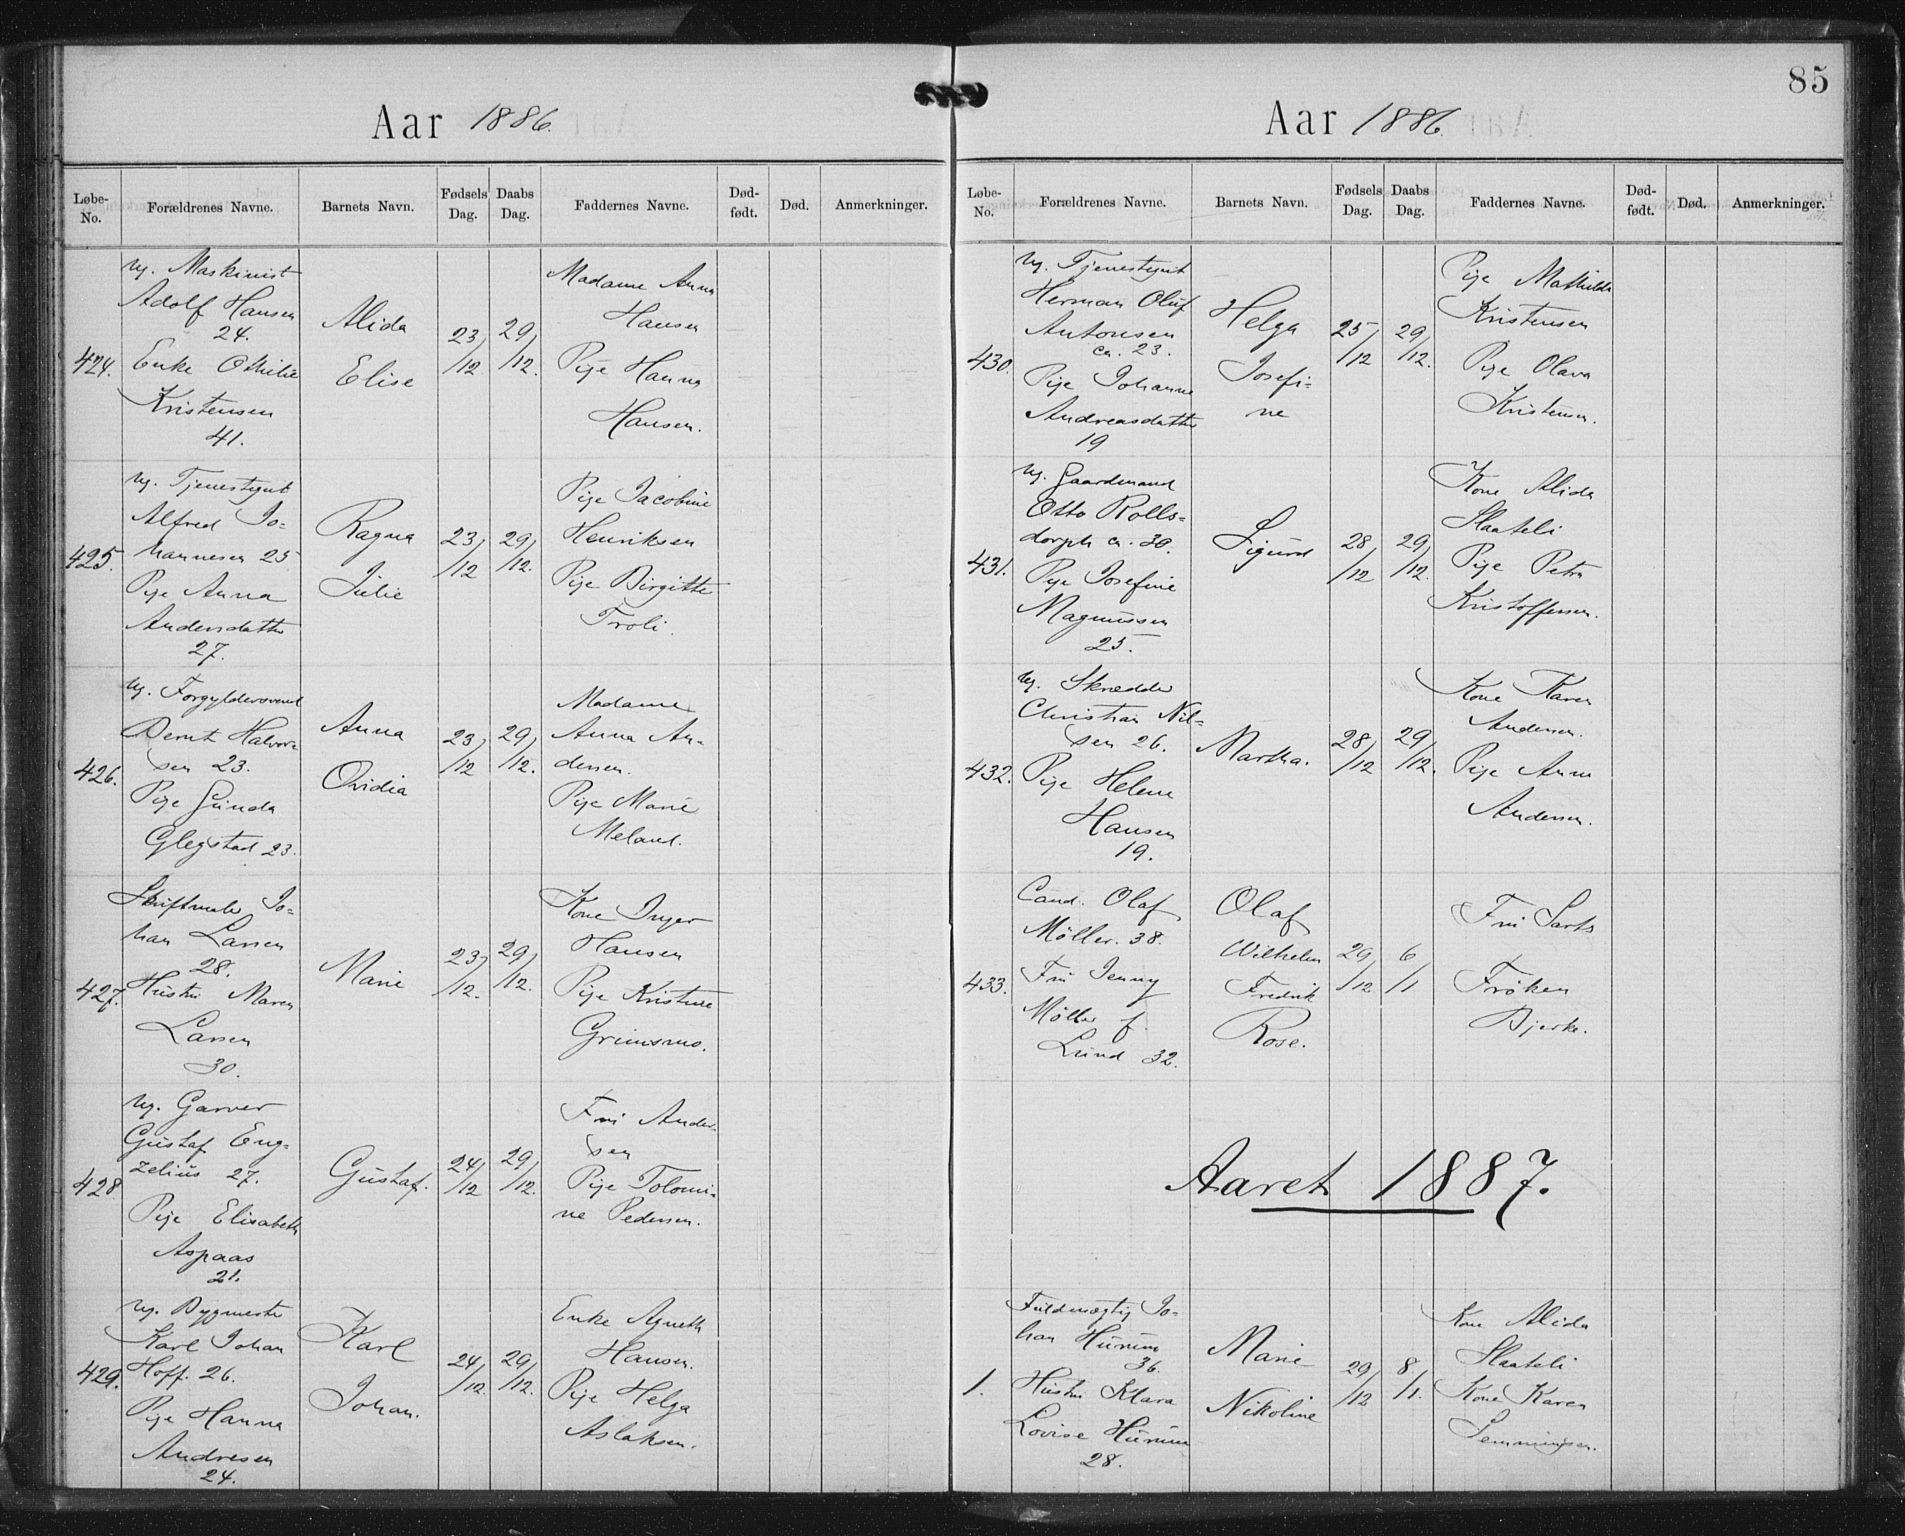 Aar 1886.
Løbe-No. Forældrenes Navne. Barnets Navn. Fødsels Dag. Daabs Dag. Faddernes Navne. Død-født. Død. Anmerkninger.
424.
Ug. Maskinist
Adolf Hansen
24.
Enke Othilie
Kristensen
41.
Alida
Elise
23/12
29/12.
Madame Anna
Hansen
Pige Hanna
Hansen.
425.
Ug. Tjenestgut
Alfred Jo-
hannesen 25
Pige Anna
Andersdatter
27.
Ragna
Julie
23/12
29/12.
Pige Jacobine
Henriksen
Pige Birgitte
Troli.
426.
Ug. Forgyldersvend
Bernt Halvor-
sen 23.
Pige Gunda
Glegstad 23.
Anna
Ovidia
23/12
29/12.
Madame
Anna An-
dersen.
Pige Marie
Meland.
427.
Skriftmaler Jo-
han Larsen
28.
Hustru Maren
Larsen
30.
Marie
23/12.
29/12.
Kone Inger
Hansen
Pige Kristine
Grimsmo.
428
Ug. Garver
Gustaf Eng-
zelius 27.
Pige Elisabeth
Aspaas
21.
Gustaf.
24/12
29/12.
Fru Ander-
sen
Pige Tolomi-
ne Pedersen.
429.
Ug. Bygmester
Karl Johan
Hoff. 26.
Pige Hanna
Andresen
24.
Karl
Johan.
24/12
29/12.
Enke Agneth
Hansen.
Pige Helga
Aslaksen.
85
Aar 1886.
Løbe-No. Forældrenes Navne. Barnets Navn. Fødsels Dag. Daabs Dag. Faddernes Navne. Død-født. Død. Anmerkninger.
430.
Ug. Tjenestgut
Herman Oluf
Antonsen
ca. 23.
Pige Johanne
Andreasdatter
19
Helga
Josefi-
ne
25/12
29/12.
Pige Mathilde
Kristensen
Pige Olava
Kristensen.
431.
Ug. Gaardmand
Otto Rolls-
dorph ca. 30.
Pige Josefine
Magnussen
25.
Sigurd
28/12
29/12.
Kone Alida
Slaateli
Pige Petra
Kristoffersen.
432.
Ug. Skrædder
Christian Nil-
sen 26.
Pige Helene
Hansen
19.
Martha.
28/12
29/12.
Kone Karen
Andersen.
Pige Anna
Andersen.
433.
Cand. Olaf
Möller. 38.
Fru Jenny
Möller f.
Lund 32.
Olaf
Wilhelm
Fredrik
Rose.
29/12
6/1
Fru Sarts
Fröken
Bjerke.
Aaret 1887.
1.
Fuldmægtig Jo-
han Hurum
36.
Hustru Klara
Lovise Hurum
28.
Marie
Nikoline
29/12
8/1.
Kone Alida
Slaateli
Kone Karen
Semmingsen.